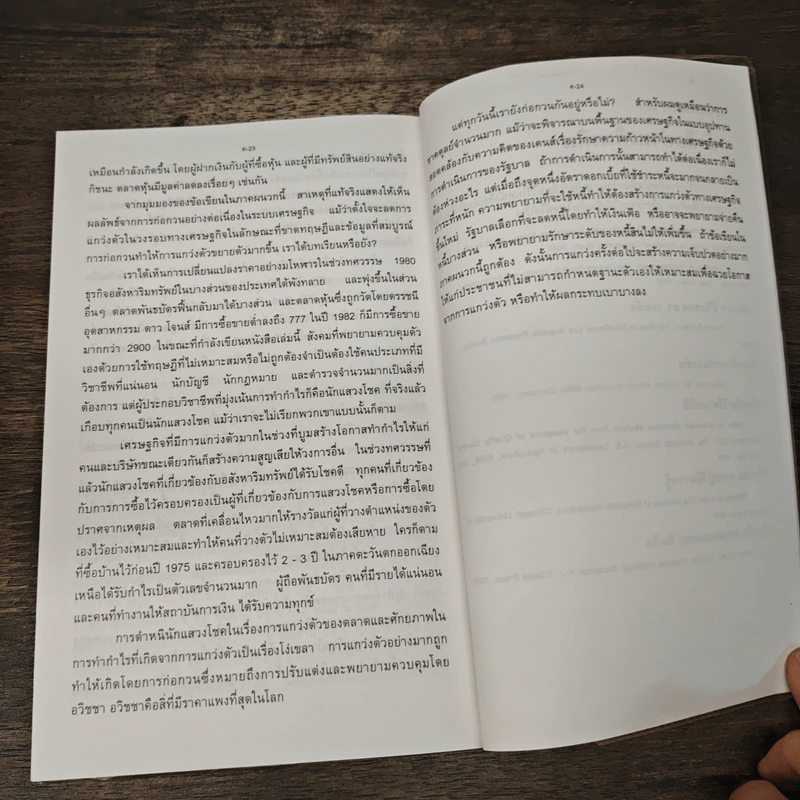 ค-23
เหมือนกำลังเกิดขึ้น โดยผู้ฝากเงินกับผู้ที่ซื้อหุ้น และผู้ที่มีทรัพย์สินอย่างแท้จริง
ก็ชนะ ตลาดหุ้นมีมูลค่าลดลงเรื่อยๆ เช่นกัน
จากมุมมองของข้อเขียนในภาคผนวกนี้ สาเหตุที่แท้จริงแสดงให้เห็น
ผลลัพธ์จากการก่อกวนอย่างต่อเนื่องในระบบเศรษฐกิจ แม้ว่าตั้งใจจะลดการ
แกว่งตัวในวงรอบทางเศรษฐกิจในลักษณะที่ขาดทฤษฎีและข้อมูลที่สมบูรณ์
การก่อกวนทำให้การแกว่งตัวขยายตัวมากขึ้น เราได้บทเรียนหรือยัง?
เราได้เห็นการเปลี่ยนแปลงราคาอย่างมโหฬารในช่วงทศวรรษ 1980
ธุรกิจอสังหาริมทรัพย์ในบางส่วนของประเทศได้พังทลาย และพุ่งขึ้นในส่วน
อื่นๆ ตลาดพันธบัตรฟื้นกลับมาได้บางส่วน และตลาดหุ้นซึ่งถูกวัดโดยดรรชนี
อุตสาหกรรม ดาว โจนส์ มีการซื้อขายต่ำลงถึง 777 ในปี 1982 ก็มีการซื้อขาย
มากกว่า 2900 ในขณะที่กำลังเขียนหนังสือเล่มนี้ สังคมที่พยายามควบคุมตัว
เองด้วยการใช้ทฤษฎีที่ไม่เหมาะสมหรือไม่ถูกต้องจำเป็นต้องใช้คนประเภทที่มี
วิชาชีพที่แน่นอน นักบัญชี นักกฎหมาย และตำรวจจำนวนมากเป็นสิ่งที่
ต้องการ แต่ผู้ประกอบวิชาชีพที่มุ่งเน้นการทำกำไรก็คือนักแสวงโชค ที่จริงแล้ว
เกือบทุกคนเป็นนักแสวงโชค แม้ว่าเราจะไม่เรียกพวกเขาแบบนั้นก็ตาม
เศรษฐกิจที่มีการแกว่งตัวมากในช่วงที่บูมสร้างโอกาสทำกำไรให้แก่
คนและบริษัทขณะเดียวกันก็สร้างความสูญเสียให้วงการอื่น ในช่วงทศวรรษที่
แล้วนักแสวงโชคที่เกี่ยวข้องกับอสังหาริมทรัพย์ได้รับโชคดี ทุกคนที่เกี่ยวข้อง
กับการการซื้อไว้ครอบครองเป็นผู้ที่เกี่ยวข้องกับการแสวงโชคหรือการซื้อโดย
ปราศจากเหตุผล ตลาดที่เคลื่อนไหวมากให้รางวัลแก่ผู้ที่วางตำแหน่งของตัว
เองไว้อย่างเหมาะสมและทำให้คนที่วางตัวไม่เหมาะสมต้องเสียหาย ใครก็ตาม
ที่ซื้อบ้านไว้ก่อนปี 1975 และครอบครองไว้ 2 - 3 ปี ในภาคตะวันตกออกเฉียง
เหนือได้รับกำไรเป็นตัวเลขจำนวนมาก ผู้ถือพันธบัตร คนที่มีรายได้แน่นอน
และคนที่ทำงานให้สถาบันการเงิน ได้รับความทุกข์
การตำหนินักแสวงโชคในเรื่องการแกว่งตัวของตลาดและศักยภาพใน
การทำกำไรที่เกิดจากการแกว่งตัวเป็นเรื่องโง่เขลา การแกว่งตัวอย่างมากถูก
ทำให้เกิดโดยการก่อกวนซึ่งหมายถึงการปรับแต่งและพยายามควบคุมโดย
อวิชชา อวิชชาคือสิ่ที่มีราคาแพงที่สุดในโลก
ค-24
แต่ทุกวันนี้เรายังก่อกวนกันอยู่หรือไม่? สำหรับผมดูเหมือนว่าการ
ขาดดุลย์จำนวนมาก แม้ว่าจะพิจารณาบนพื้นฐานของเศรษฐกิจในแบบอุปทาน
สอดคล้องกับความคิดของเคนส์เรื่องรักษาความก้าวหน้าในทางเศรษฐกิจด้วย
การดำเนินการของรัฐบาล ถ้าการดำเนินการนั้นสามารถทำได้ต่อเนื่องเราก็ไม่
ต้องห่วงอะไร แต่เมื่อถึงจุดหนึ่งอัตราดอกเบี้ยที่ใช้ชำระหนี้จะมากจนกลายเป็น
ภาระที่หนัก ความพยายามที่จะใช้หนี้ทำให้ต้องสร้างการแกว่งตัวทางเศรษฐกิจ
ขึ้นใหม่ รัฐบาลเลือกที่จะลดหนี้โดยทำให้เงินเฟ้อ หรืออาจจะพยายามจ่ายคืน
หนี้บางส่วน หรือพยายามรักษาระดับของหนี้สินไม่ให้เพิ่มขึ้น ถ้าข้อเขียนใน
ภาคผนวกนี้ถูกต้อง ดังนั้นการแกว่งครั้งต่อไปจะสร้างความเจ็บปวดอย่างมาก
ให้แก่ประชาชนที่ไม่สามารถกำหนดฐานะตัวเองให้เหมาะสมเพื่อฉวยโอกาส
จากการแกว่งตัว หรือทำให้ผลกระทบเบาบางลง